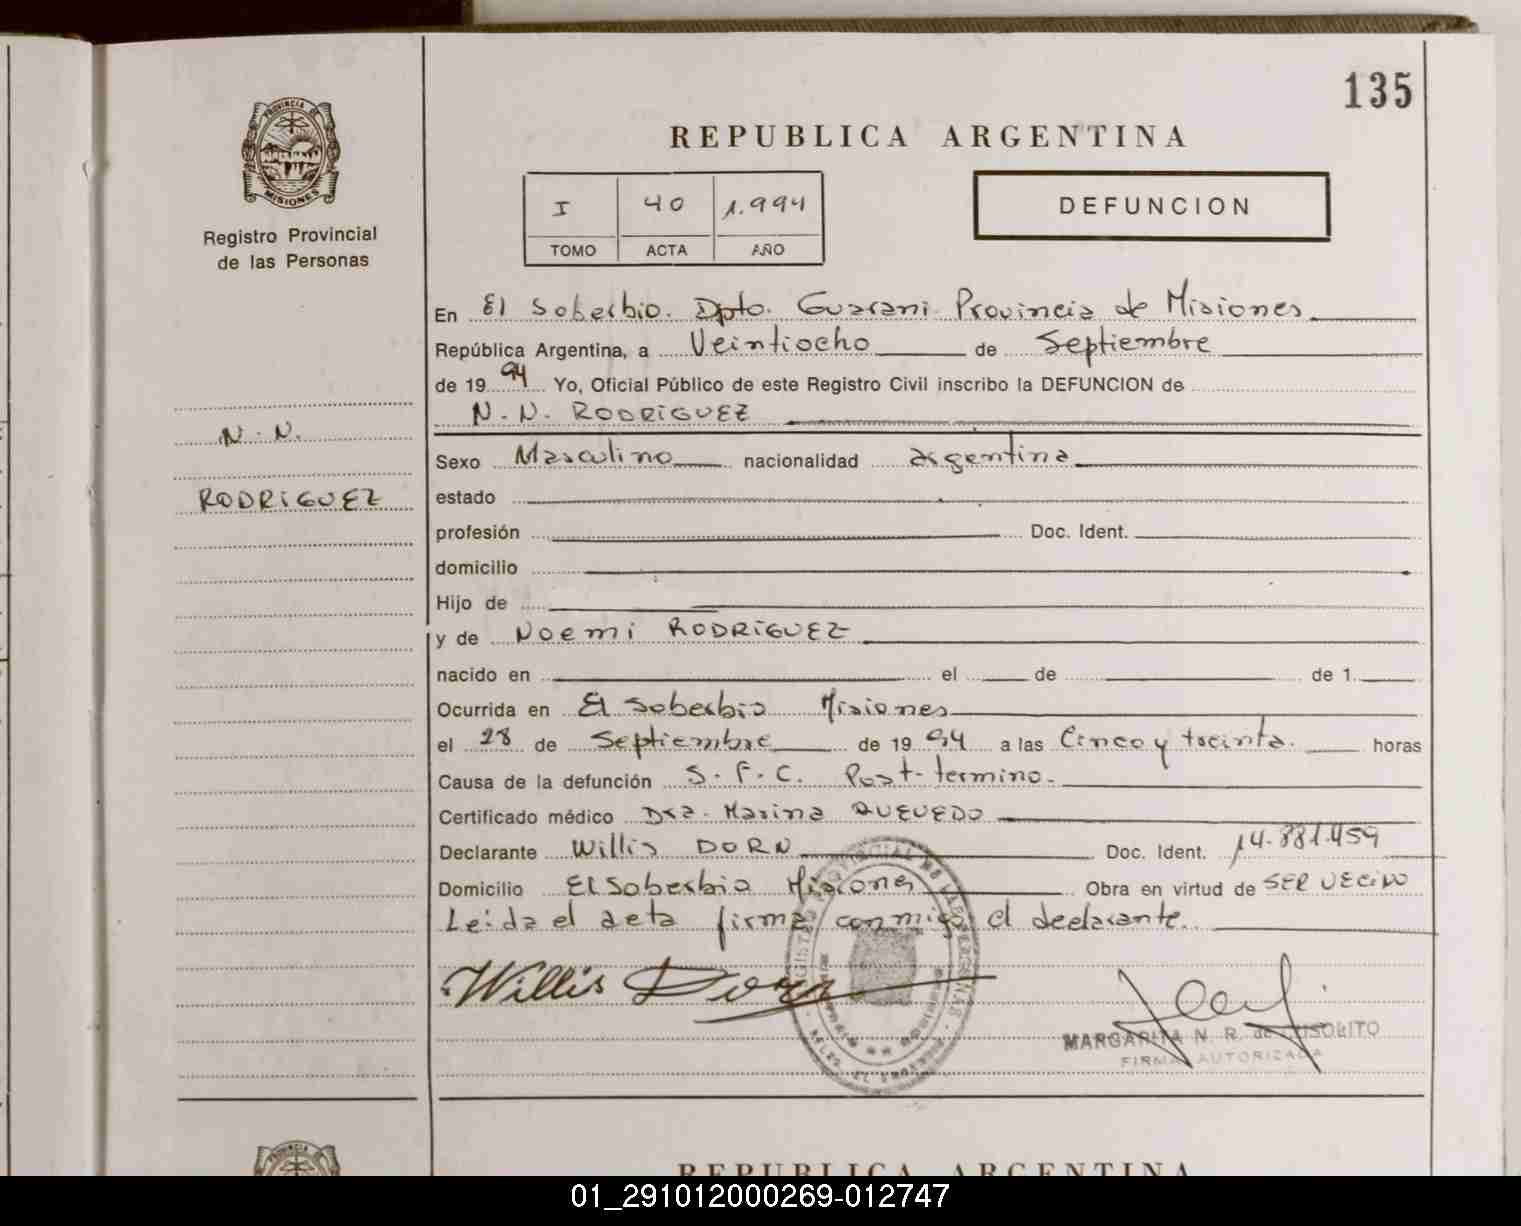 135
PROVINCIA DE
MISIONES
REPUBLICA ARGENTINA
I 40 1.994
TOMO ACTA AÑO
DEFUNCION
Registro Provincial
de las Personas
En El Soberbio. Dpto. Guarani Provincia de Misiones
República Argentina, a Veintiocho de Septiembre
de 19 94 Yo, Oficial Público de este Registro Civil inscribo la DEFUNCION de
N. N. RODRIGUEZ
N. N.
RODRIGUEZ
Sexo Masculino nacionalidad argentina
estado
profesión Doc. Ident.
domicilio
Hijo de
y de Noemi RODRIGUEZ
nacido en el de de 1
Ocurrida en El Soberbio Misiones
el 28 de Septiembre de 19 94 a las Cinco y treinta. horas
Causa de la defunción S. F. C. Post-termino.
Certificado médico Dra. Marina QUEVEDO
Declarante Willis DORN Doc. Ident. 14.881.459
Domicilio El Soberbio Misiones Obra en virtud de SER VECINO
Leida el acta firma conmigo el declarante.
Willis Dorn
MARGARITA N. R. de CUSOLITO
FIRMA AUTORIZADA
REPUBLICA ARGENTINA
01_291012000269-012747